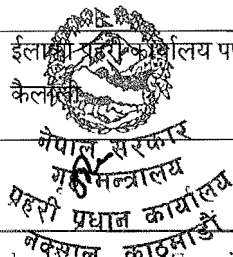 ईलाका प्रहरी कार्यालय
कैलाली
नेपाल सरकार
गृह मन्त्रालय
प्रहरी प्रधान कार्यालय
नक्साल, काठमाडौं